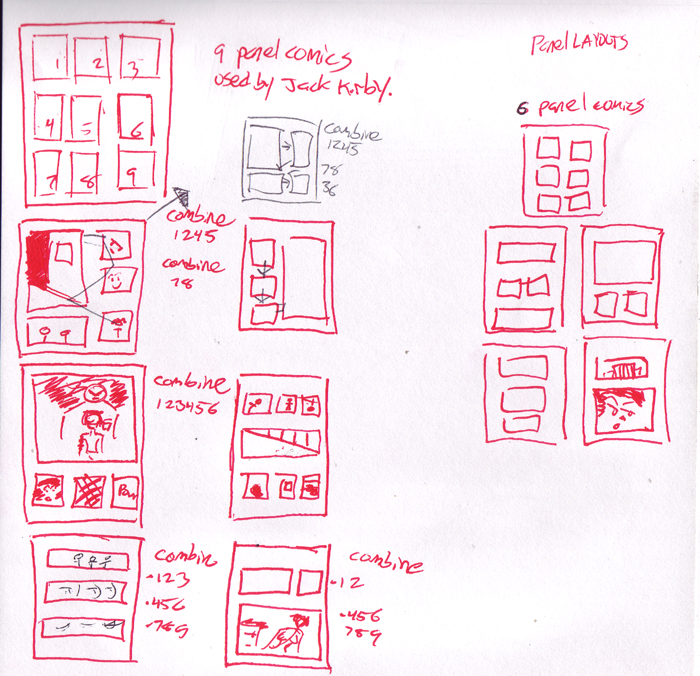 1 2 3
4 5 6
7 8 9
9 panel comics
used by Jack Kirby.
combine
1245
78
36
combine
1245
combine
78
combine
123456
Pow
combine
-123
·456
·789
combine
-12
·456
789
Panel LAYOUTS
6 panel comics